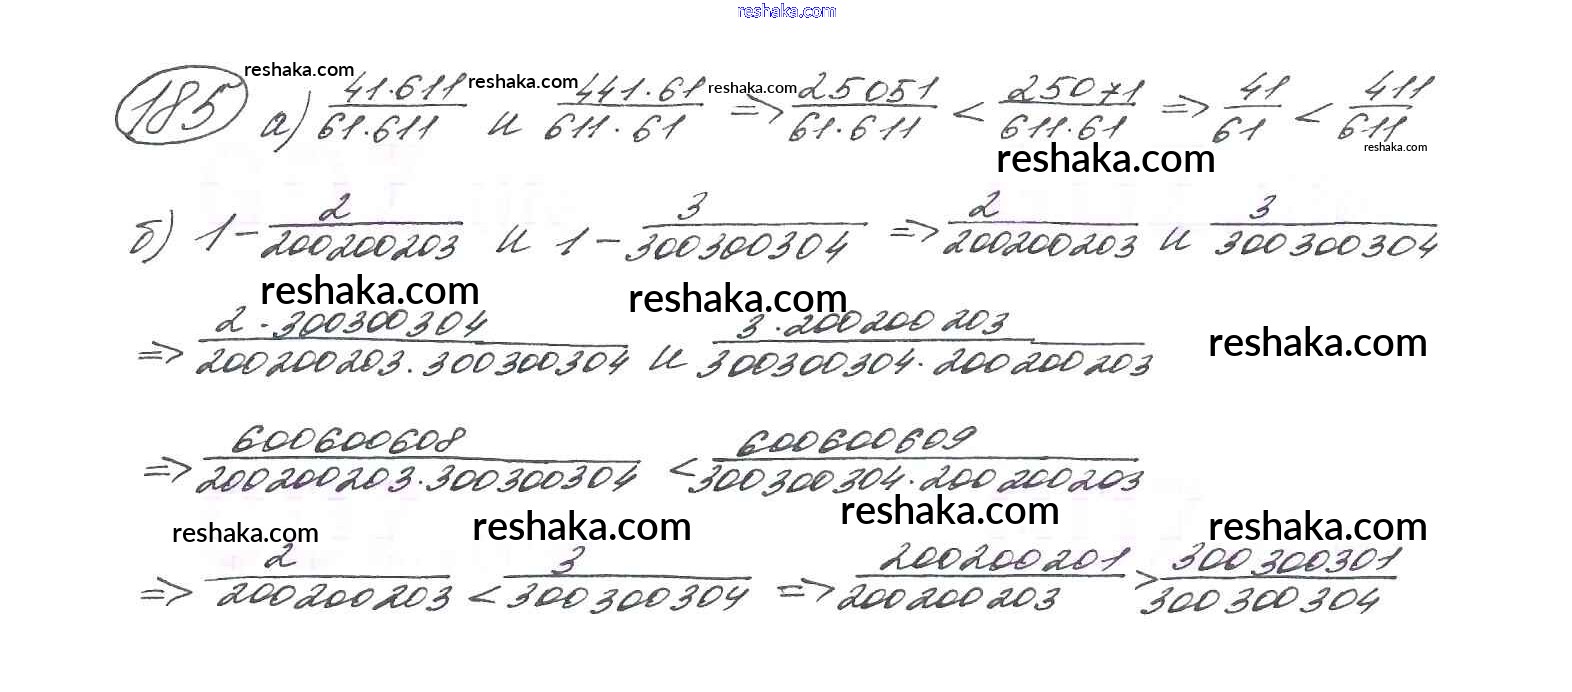 reshaka.com
185 а) 41·611/61·611 и 441·61/611·61 => 25051/61·611 < 25071/611·61 => 41/61 < 411/611
reshaka.com reshaka.com reshaka.com
reshaka.com reshaka.com
б) 1 - 2/200200203 и 1 - 3/300300304 => 2/200200203 и 3/300300304
reshaka.com reshaka.com
=> 2·300300304/200200203·300300304 и 3·200200203/300300304·200200203
reshaka.com
=> 600600608/200200203·300300304 < 600600609/300300304·200200203
reshaka.com reshaka.com reshaka.com reshaka.com
=> 2/200200203 < 3/300300304 => 200200201/200200203 > 300300301/300300304